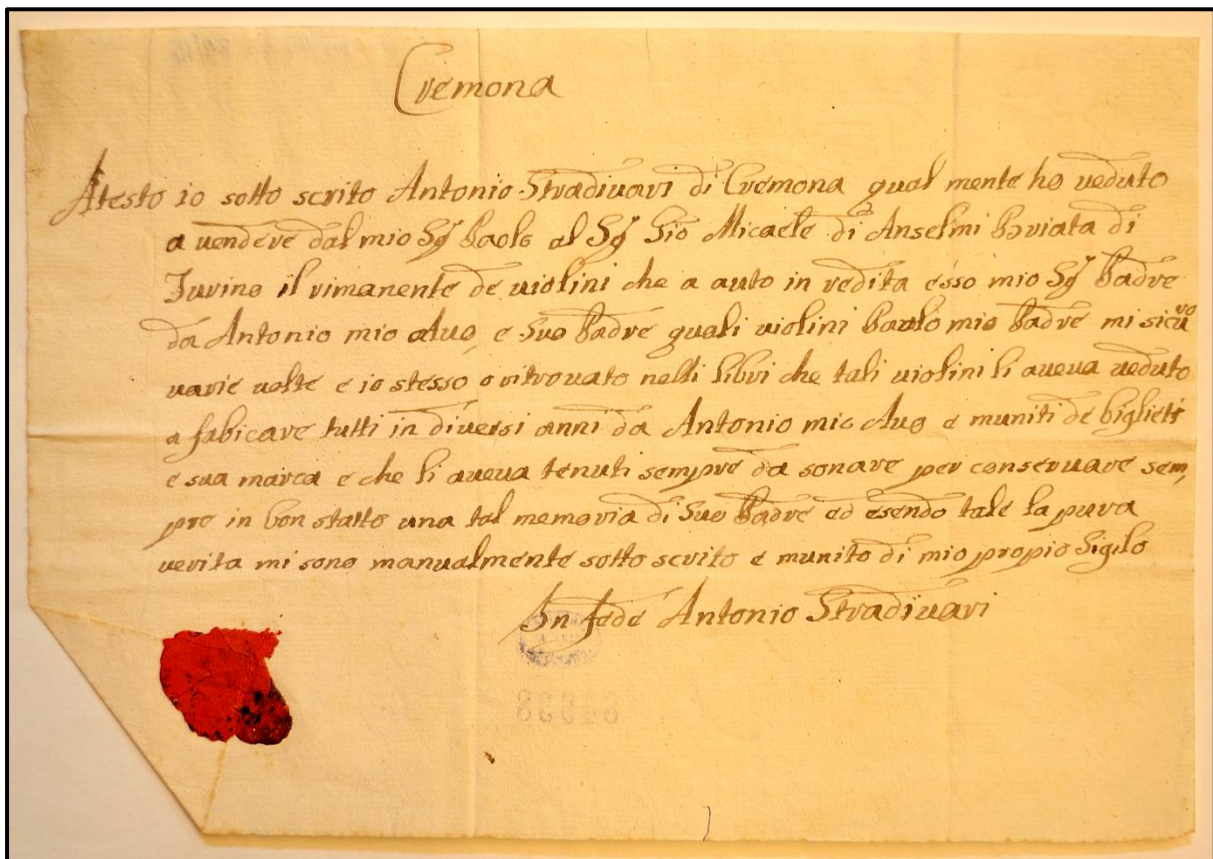 Cremona
Atesto io sotto scrito Antonio Stradiuari di Cremona qual mente ho ueduto
a uendere dal mio Sg Paolo al Sg Gio Micaele di Anselmi Briata di
Turino il rimanente de uiolini che a auto in redita esso mio Sg Padre
da Antonio mio Auo, e Suo Padre quali uiolini Paolo mio Padre mi sicuro
uarie uolte e io stesso o ritrouato nelli libri che tali uiolini li aueua ueduto
a fabicare tutti in diuersi anni da Antonio mio Auo e muniti de biglieti
e sua marca e che li aueua tenuti sempre da sonare per conseruare sem,
pre in bon statto una tal memoria di Suo Padre ed esendo tale la pura
uerita mi sono manualmente sotto scrito e munito di mio propio Sigilo
In fede Antonio Stradiuari